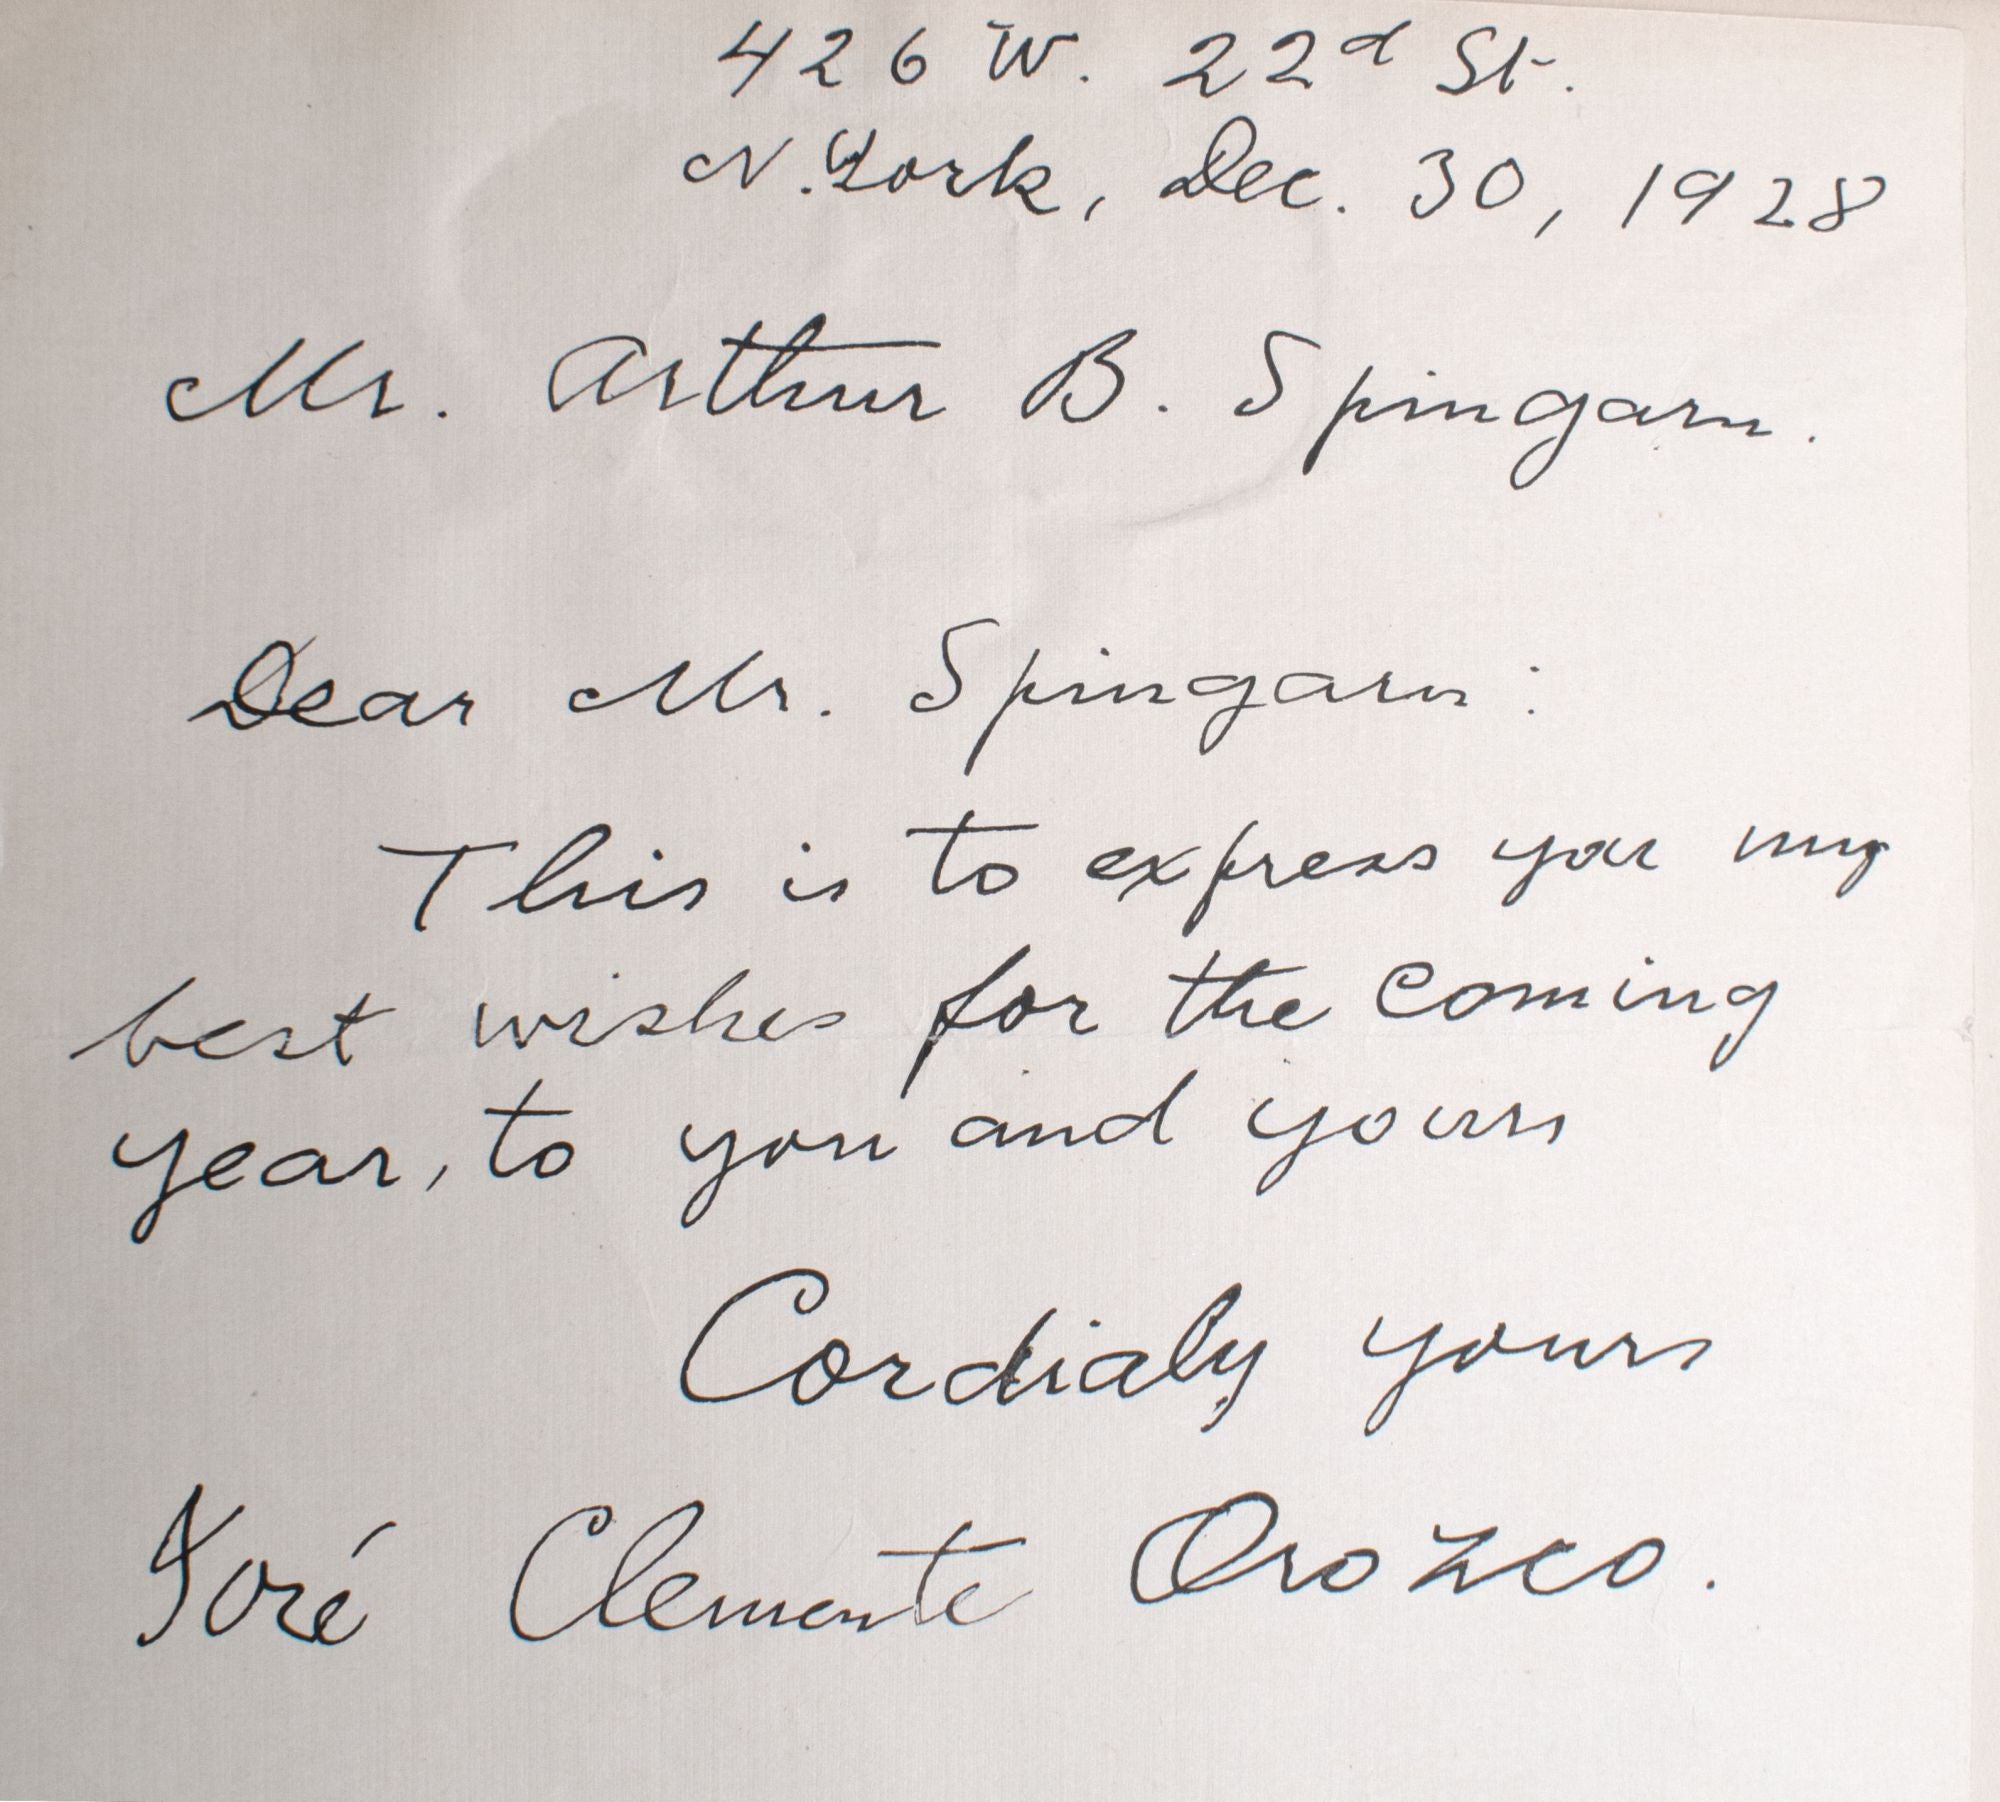 426 W. 22d St.
N. York, Dec. 30, 1928
Mr. Arthur B. Spingarn.
Dear Mr. Spingarn:
This is to express you my
best wishes for the coming
year, to you and yours
Cordialy yours
José Clemente Orozco.